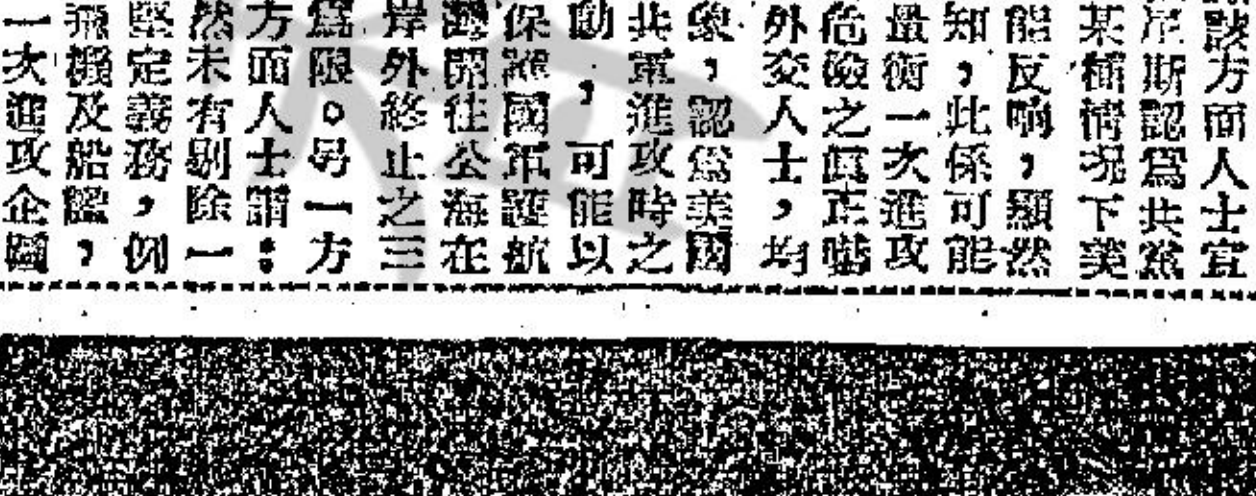 該方面人士宣
尼斯認爲共黨
某種情况下美
能反响，顯然
知，此係可能
量衡一次進攻
危險之眞正
外交人士，均
象，認爲美國
共軍進攻時之
動，可能以
保護國軍護航
灣開往公海在
岸外終止之三
爲限。另一方
方面人士謂：
然未有剔除一
堅定義務，例
飛機及船艦，
一次進攻企圖